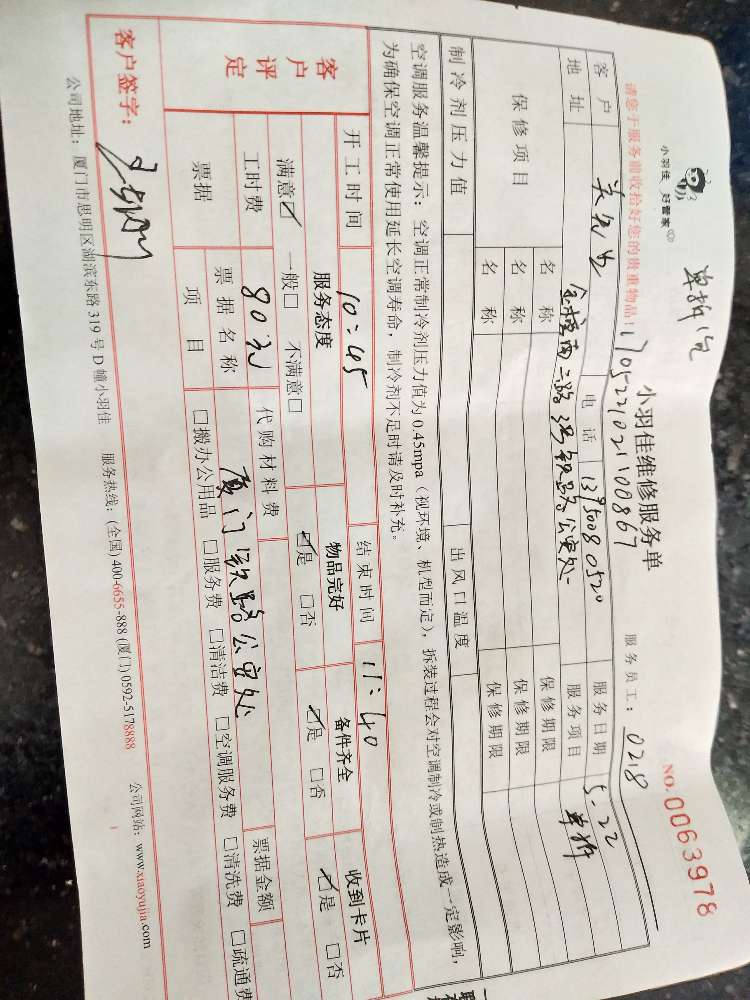 单拆1台
小羽佳 好管家
小羽佳维修服务单
NO.0063978
请您于服务前收拾好您的贵重物品!
170522102100867
服务员工: 0218
客户 电话 13950080520 服务日期 5.22
地址 金榜南二路3号铁路公安处 服务项目 单拆
保修项目 名称 保修期限
名称 保修期限
名称 保修期限
制冷剂压力值 出风口温度
空调服务温馨提示:空调正常制冷剂压力值为0.45mpa(视环境、机型而定),拆装过程会对空调制冷或制热造成一定影响,
为确保空调正常使用延长空调寿命,制冷剂不足时请及时补充。
开工时间 10:45 结束时间 11:40
客户评定 服务态度 物品完好 备件齐全 收到卡片
满意☑ 一般□ 不满意□ ☑是 □否 ☑是 □否 ☑是 □否
工时费 80元 代购材料费 票据金额
票据 票据名称 厦门铁路公安处
项目 □搬办公用品 □服务费 □清洁费 □空调服务费 □清洗费 □疏通费
客户签字:
公司地址:厦门市思明区湖滨东路319号D幢小羽佳 服务热线:(全国)400-6655-888 (厦门)0592-5178888 公司网站:www.xiaoyujia.com